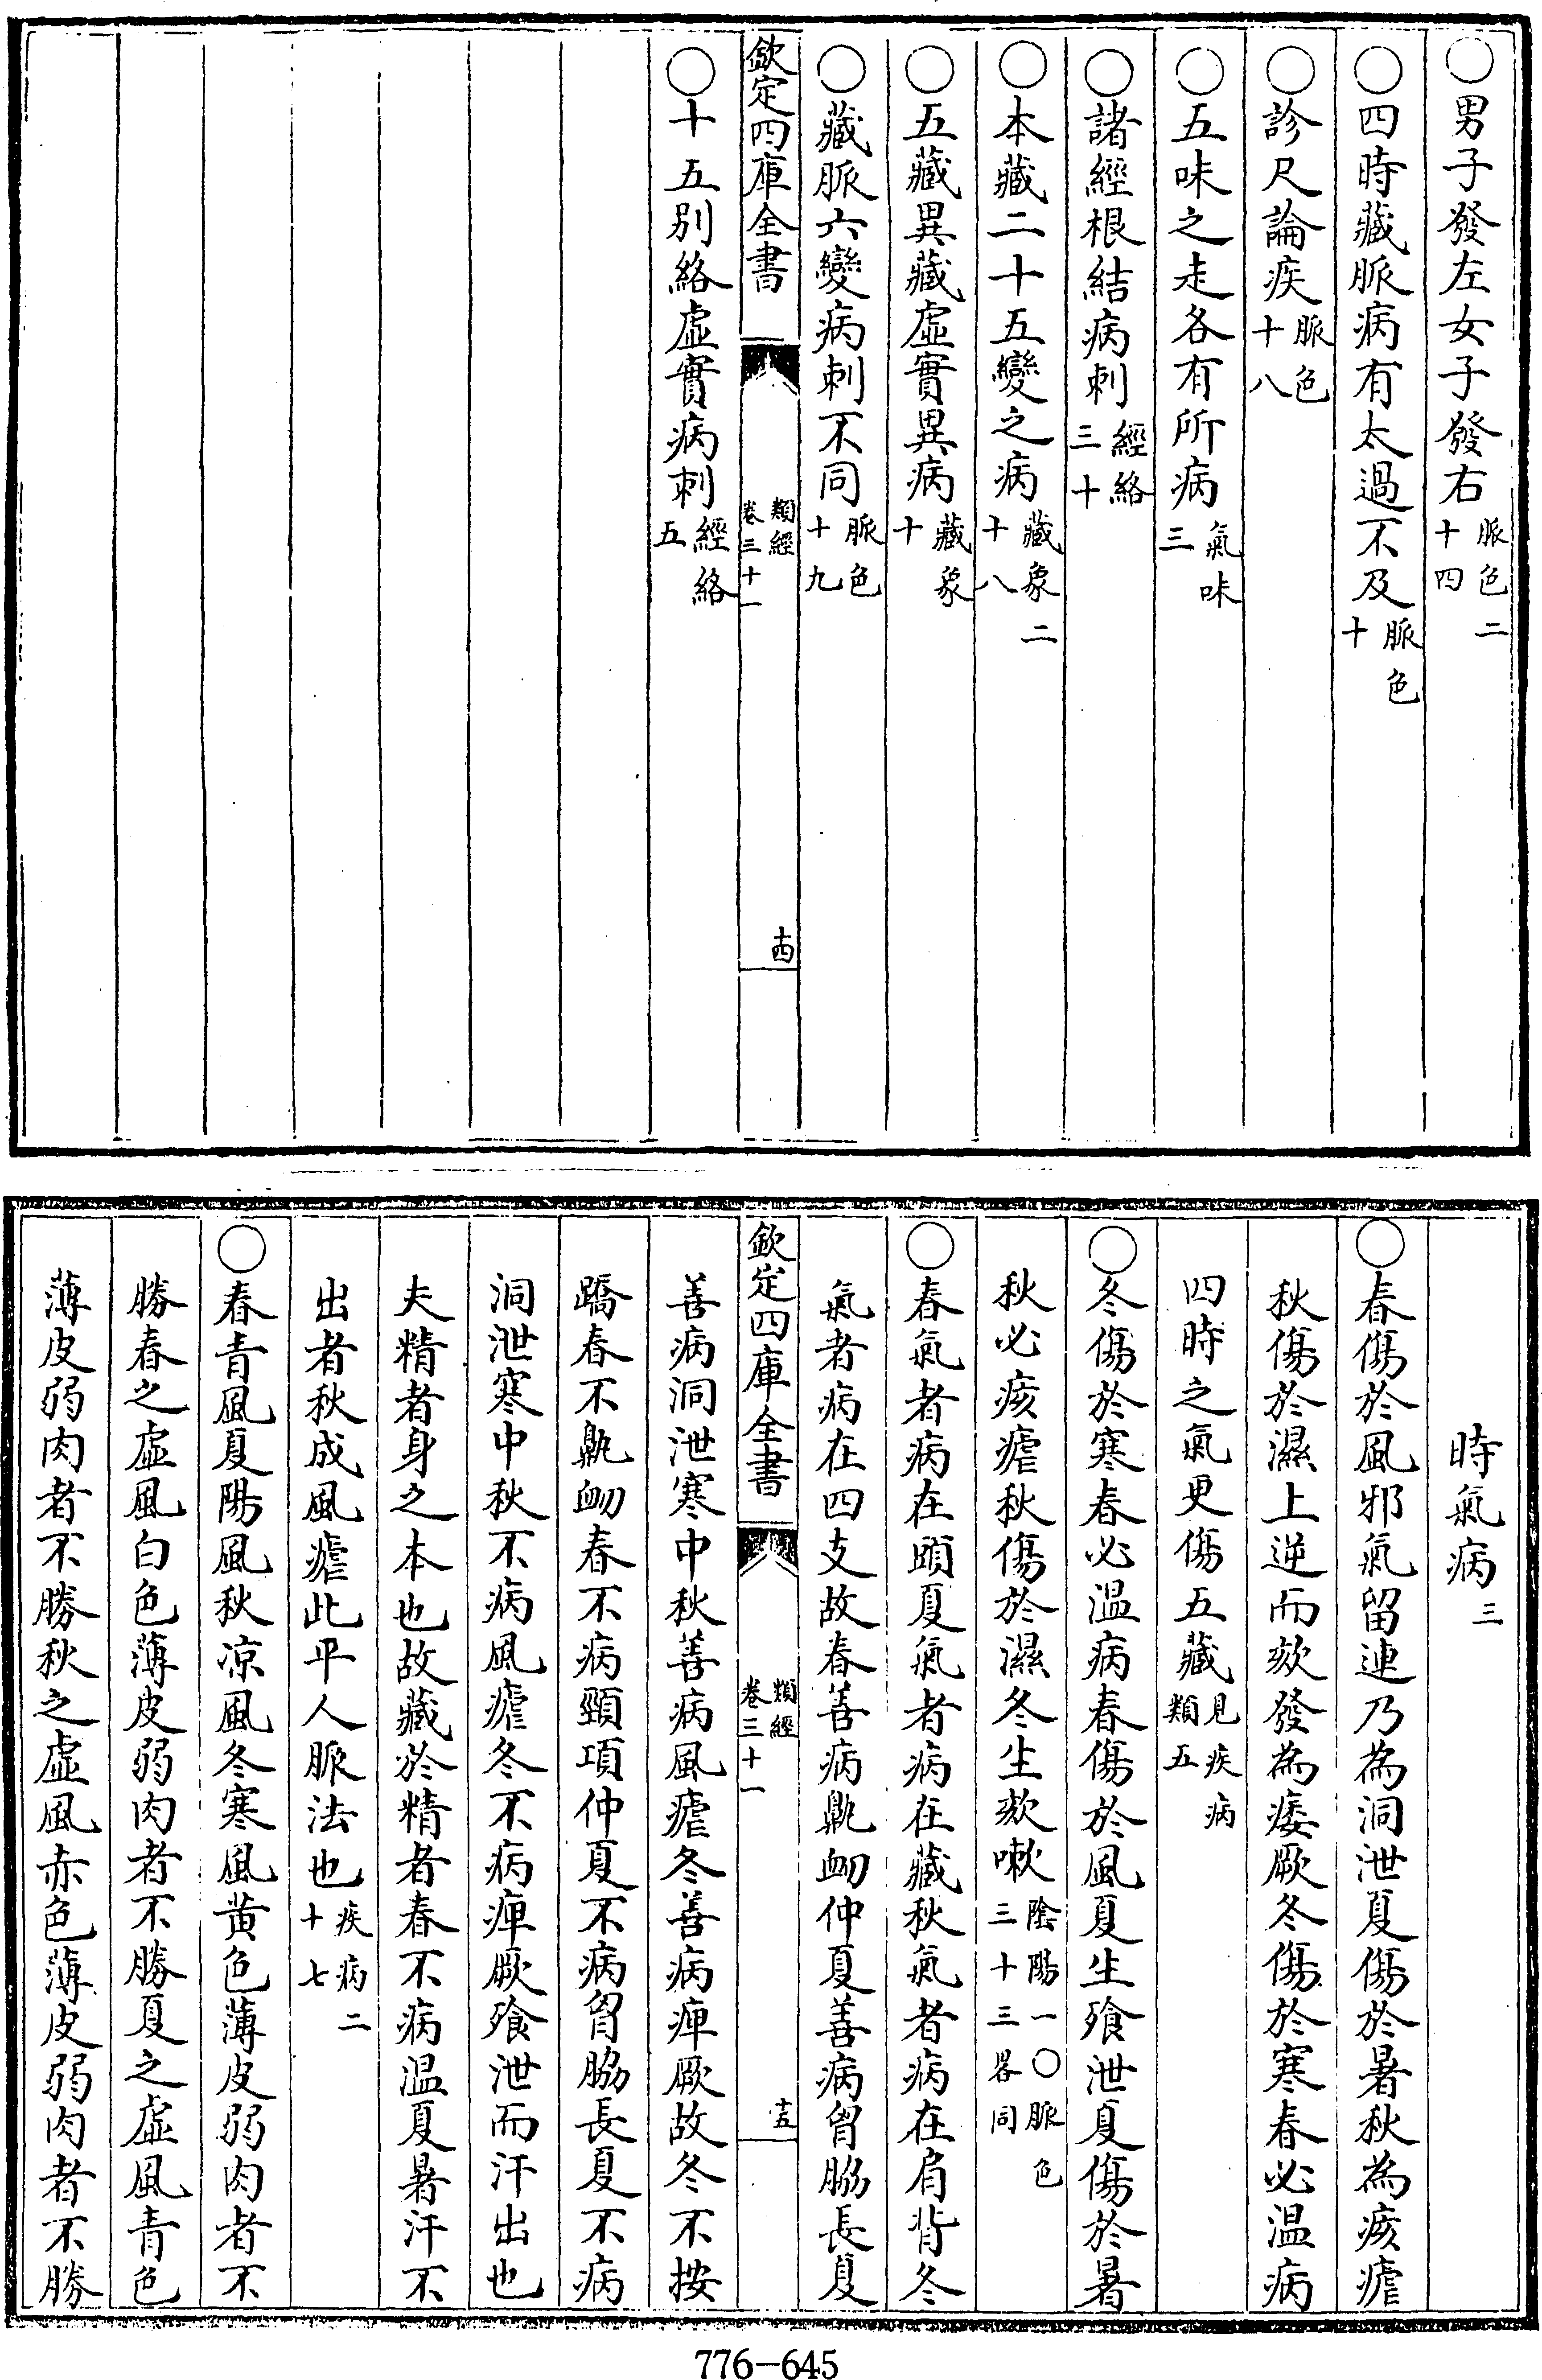 ○男子發左女子發右脈色二十四
○四時藏脈病有太過不及脈色十
○診尺論疾脈色十八
○五味之走各有所病氣味三
○諸經根結病刺經絡三十
○本藏二十五變之病藏象二十八
○五藏異藏虛實異病藏象十
○藏脈六變病刺不同脈色十九
欽定四庫全書 類經卷三十一 十四
○十五別絡虛實病刺經絡五
時氣病三
○春傷於風邪氣留連乃為洞泄夏傷於暑秋為痎瘧
秋傷於濕上逆而欬發為痿厥冬傷於寒春必溫病
四時之氣更傷五藏見疾病類五
○冬傷於寒春必溫病春傷於風夏生飱泄夏傷於暑
秋必痎瘧秋傷於濕冬生欬嗽陰陽一○脈色三十三畧同
○春氣者病在頭夏氣者病在藏秋氣者病在肩背冬
氣者病在四支故春善病鼽衂仲夏善病胷脇長夏
欽定四庫全書 類經卷三十一 十五
善病洞泄寒中秋善病風瘧冬善病痺厥故冬不按
蹻春不鼽衂春不病頸項仲夏不病胷脇長夏不病
洞泄寒中秋不病風瘧冬不病痺厥飱泄而汗出也
夫精者身之本也故藏於精者春不病溫夏暑汗不
出者秋成風瘧此平人脈法也疾病二十七
○春青風夏陽風秋凉風冬寒風黃色薄皮弱肉者不
勝春之虛風白色薄皮弱肉者不勝夏之虛風青色
薄皮弱肉者不勝秋之虛風赤色薄皮弱肉者不勝
776-645